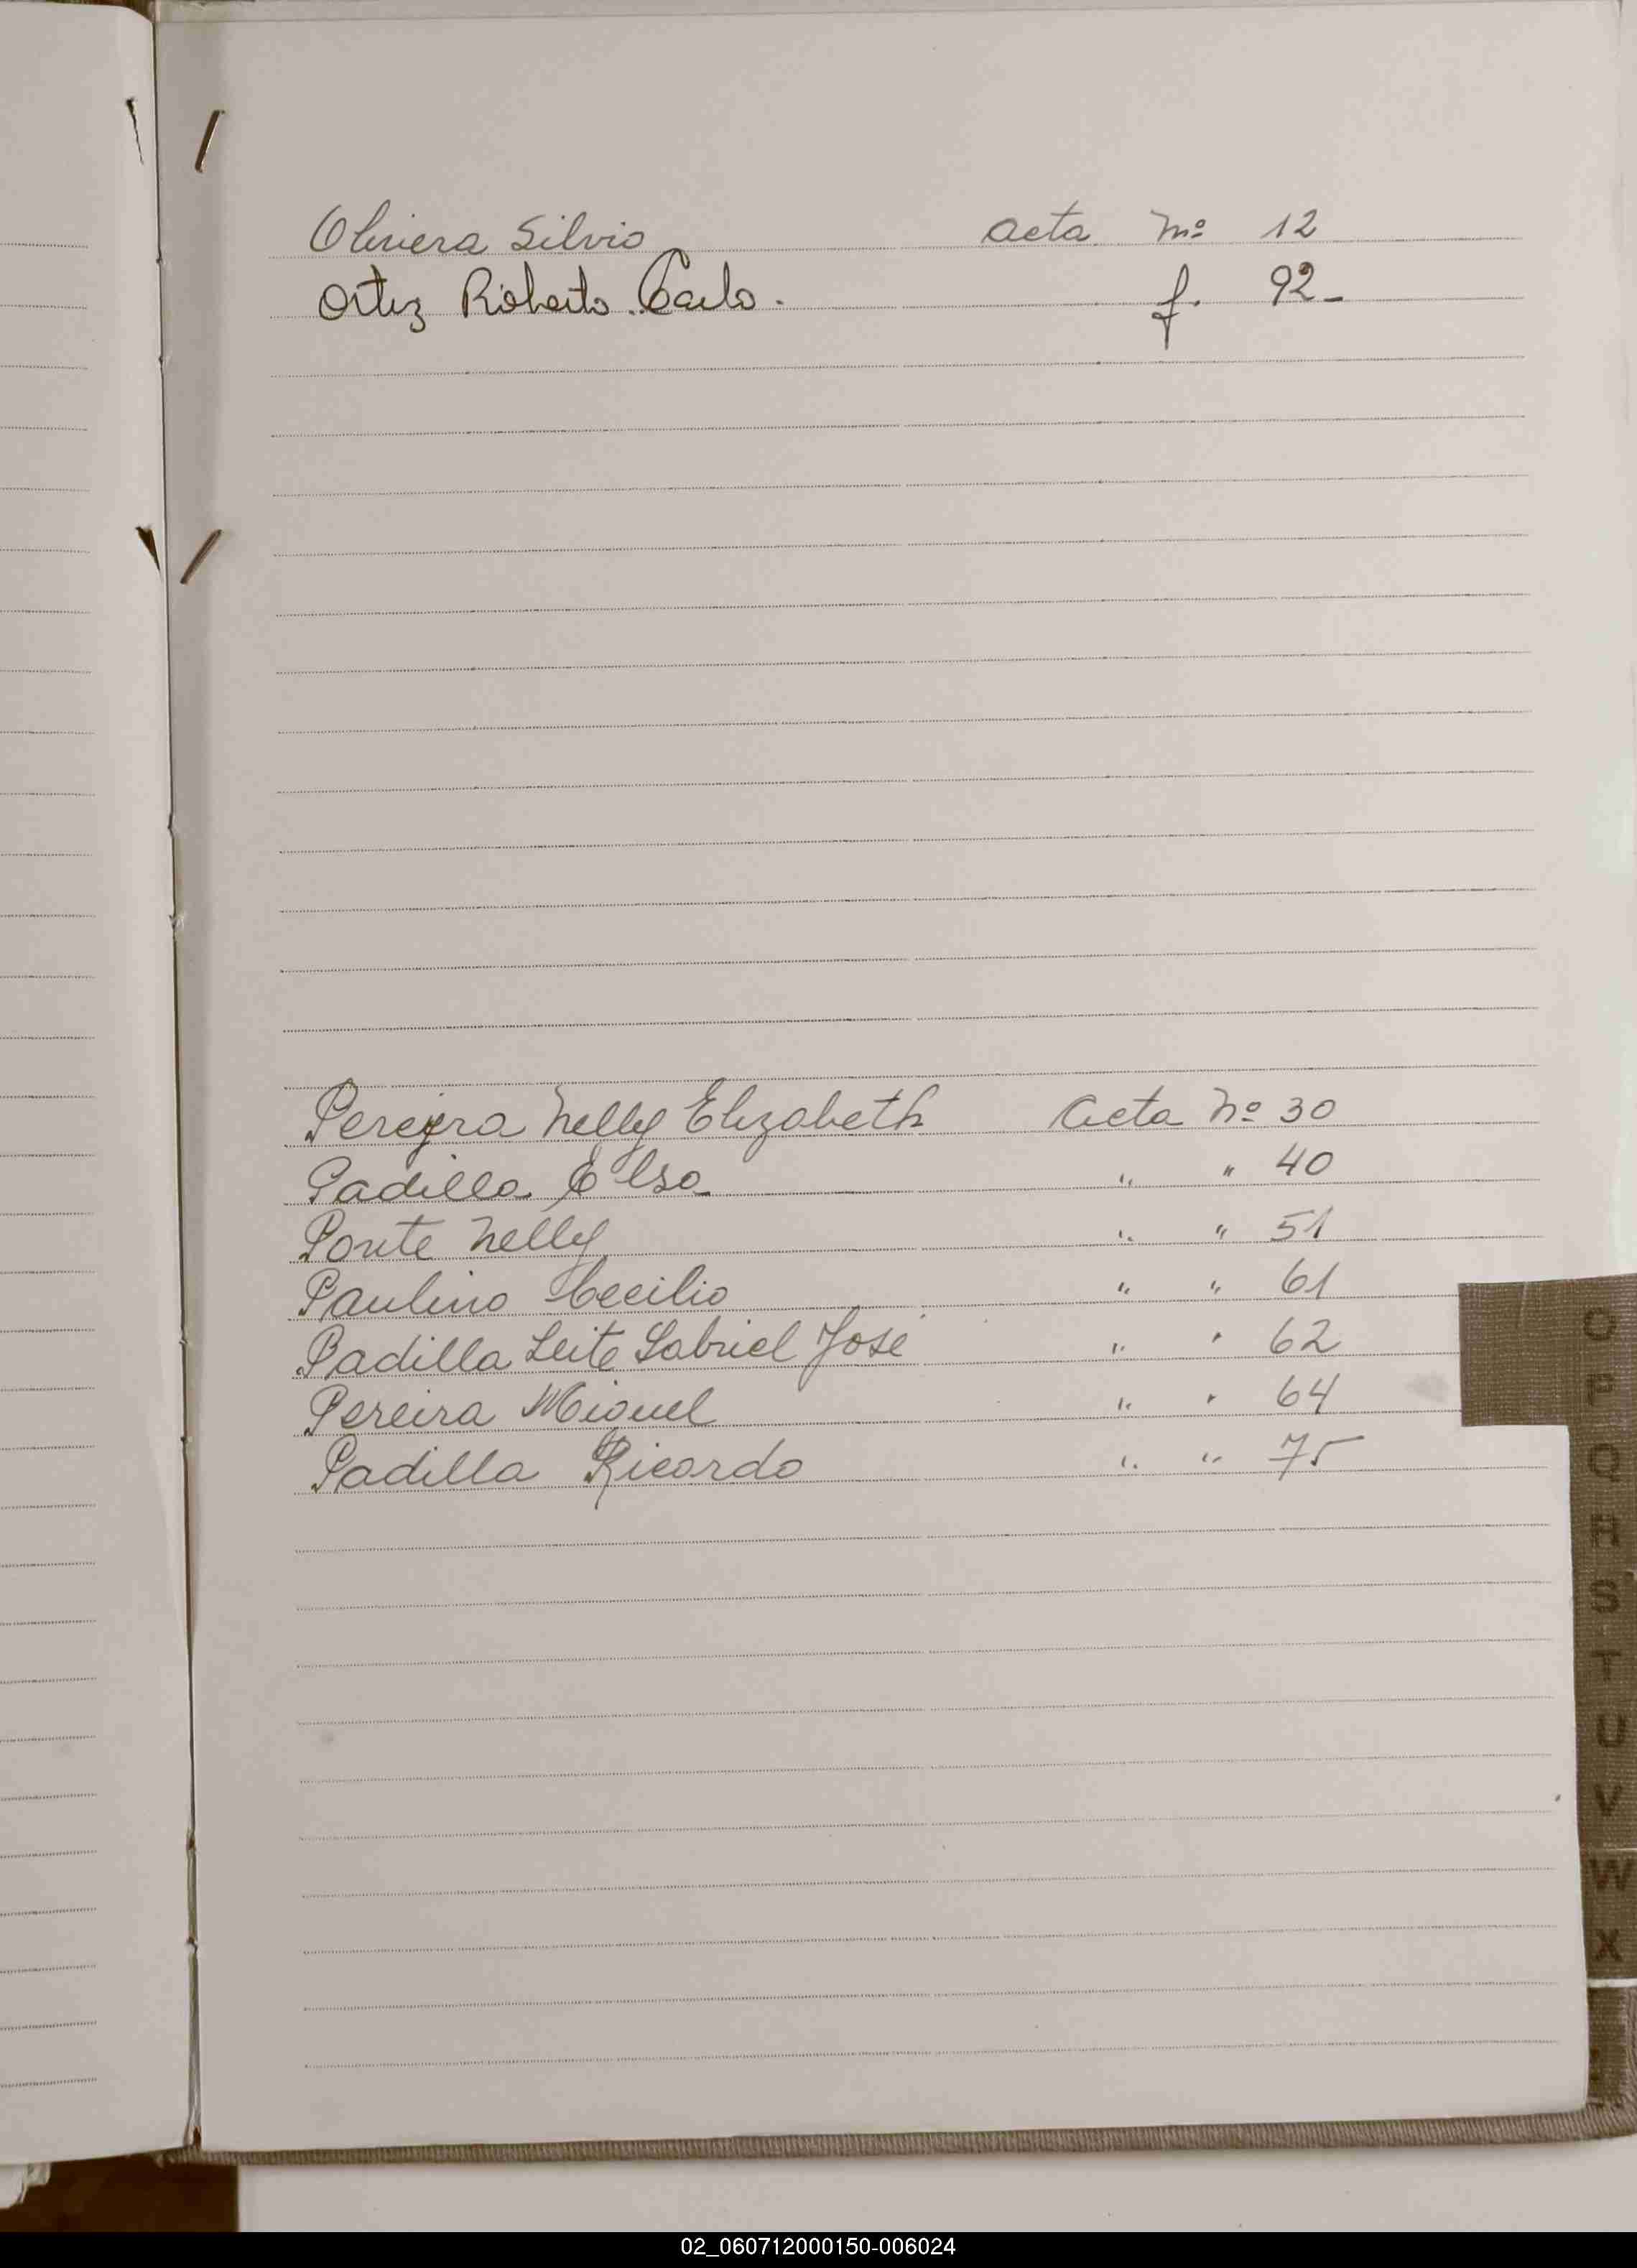 Olivera Silvio acta nº 12
Ortiz Roberto Carlo. f. 92-
Pereyra Nelly Elizabeth Acta Nº 30
Padilla Elsa " " 40
Ponte Nelly " " 51
Paulino Cecilio " " 61
Padilla Leite Gabriel José " " 62
Pereira Miguel " " 64
Padilla Ricardo " " 75
O
P
Q
R
S
T
U
V
W
X
02_060712000150-006024